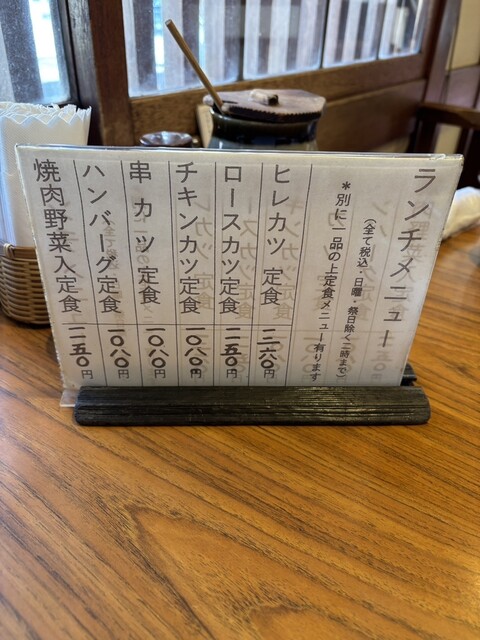 ランチメニュー
(全て税込・日曜・祭日除く二時まで)
*別に一品の上定食メニュー有ります
ヒレカツ 定食 一二六〇円
ロースカツ定食 一一五〇円
チキンカツ定食 一〇八〇円
串カツ 定食 一〇八〇円
ハンバーグ定食 一〇八〇円
焼肉野菜入定食 一一五〇円